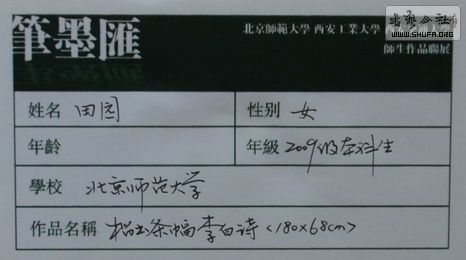 書藝公社
WWW.SHUFA.ORG
筆墨匯
北京師範大學 西安工業大學
師生作品聯展
姓名 田园 性別 女
年齡 年級 2009级本科生
學校 北京师范大学
作品名稱 楷书条幅李白诗(180x68cm)